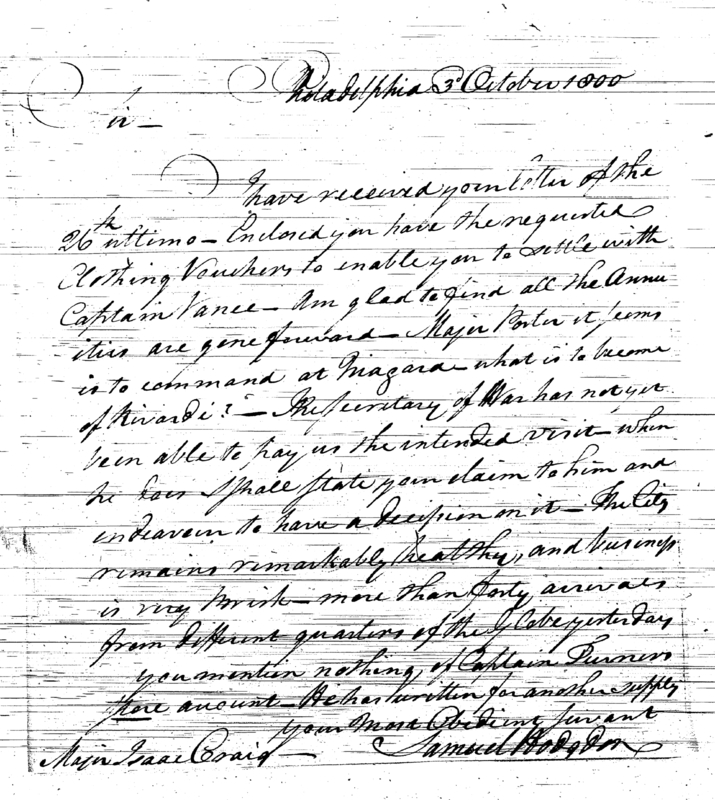 Philadelphia 3d October 1800
Sir —
I have received your letter of the
26th ultimo — Enclosed you have the requested
Clothing Vouchers to enable you to settle with
Captain Vance — Am glad to find all the Annu
ities are gone forward — Major Porter it seems
is to command at Niagara — what is to become
of Rivardi? — The Secretary of War has not yet
been able to pay us the intended visit — when
he does I shall state your claim to him and
endeavour to have a decision on it — The City
remains remarkably healthy, and business
is very brisk — more than forty arrivals
from different quarters of the Globe yesterday
you mention nothing of Captain Turners
store account — He has written for another supply
your Most Obedient servant
Samuel Hodgdon
Major Isaac Craig —